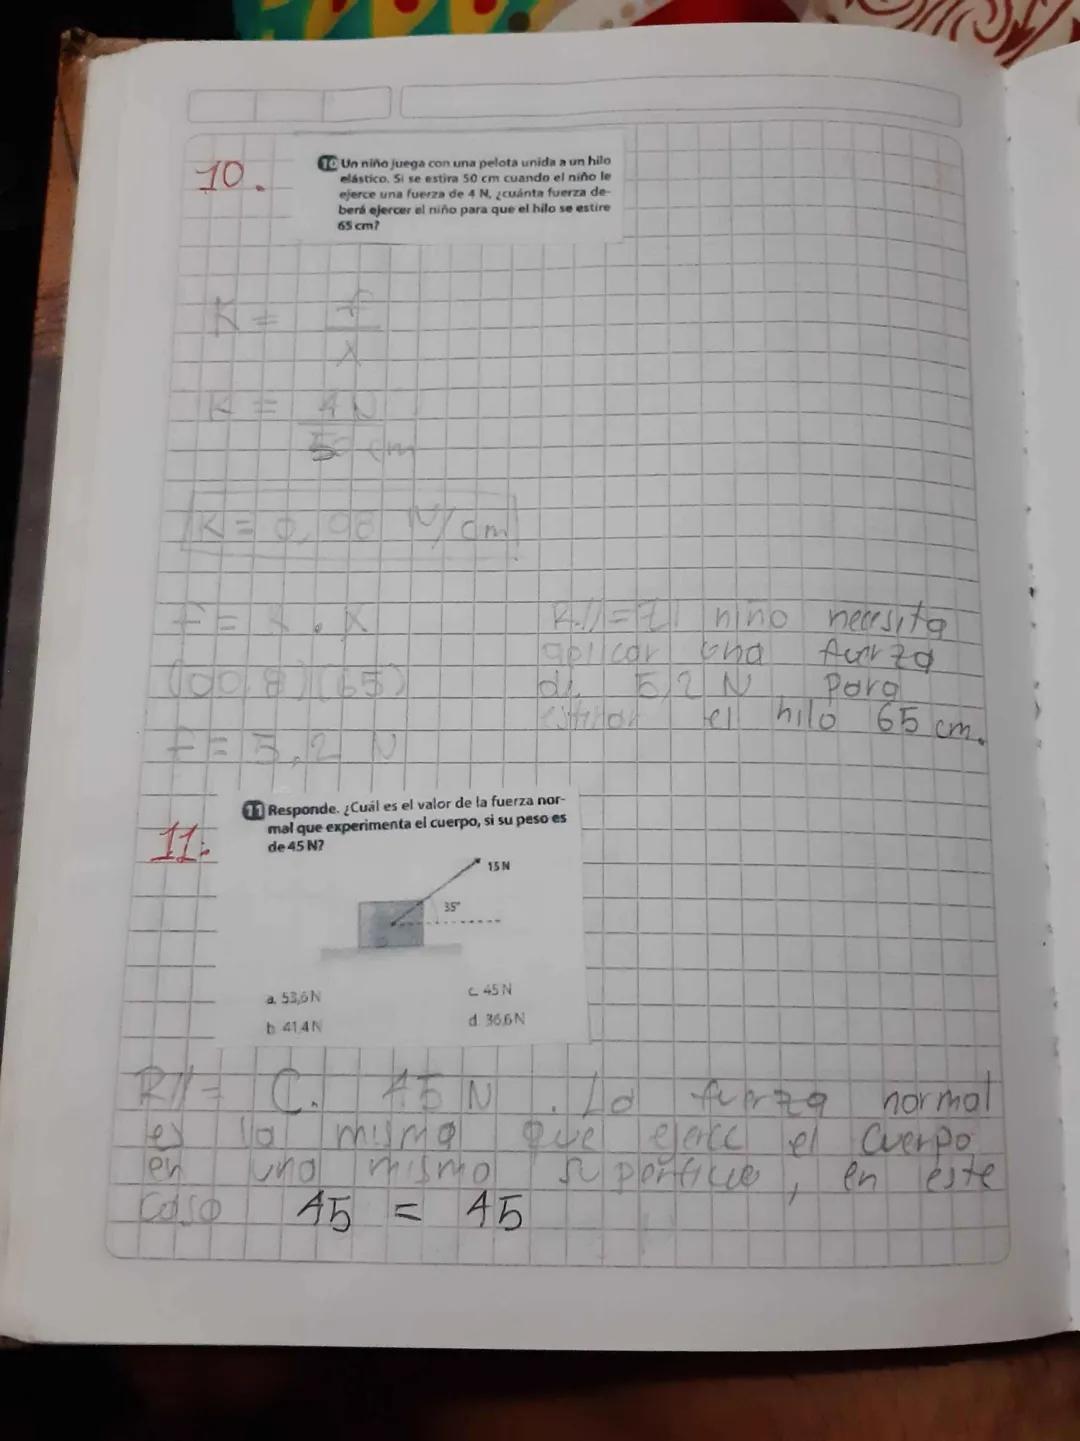 10.
10 Un niño juega con una pelota unida a un hilo
elástico. Si se estira 50 cm cuando el niño le
ejerce una fuerza de 4 N, ¿cuánta fuerza de-
berá ejercer el niño para que el hilo se estire
65 cm?
K = f
x
K = 4 N
50 cm
K = 0,08 N/cm
F = K . X
R// = El niño necesita
aplicar una fuerza
(00,8) (65)
de 5,2 N para
estirar el hilo 65 cm.
F = 5,2 N
11.
11 Responde. ¿Cuál es el valor de la fuerza nor-
mal que experimenta el cuerpo, si su peso es
de 45 N?
15 N
35°
a. 53,6 N
c. 45 N
b. 41,4 N
d. 36,6 N
R// = C. 45 N . La fuerza normal
es la misma que ejerce el cuerpo
en una mismo superficie, en este
caso 45 = 45